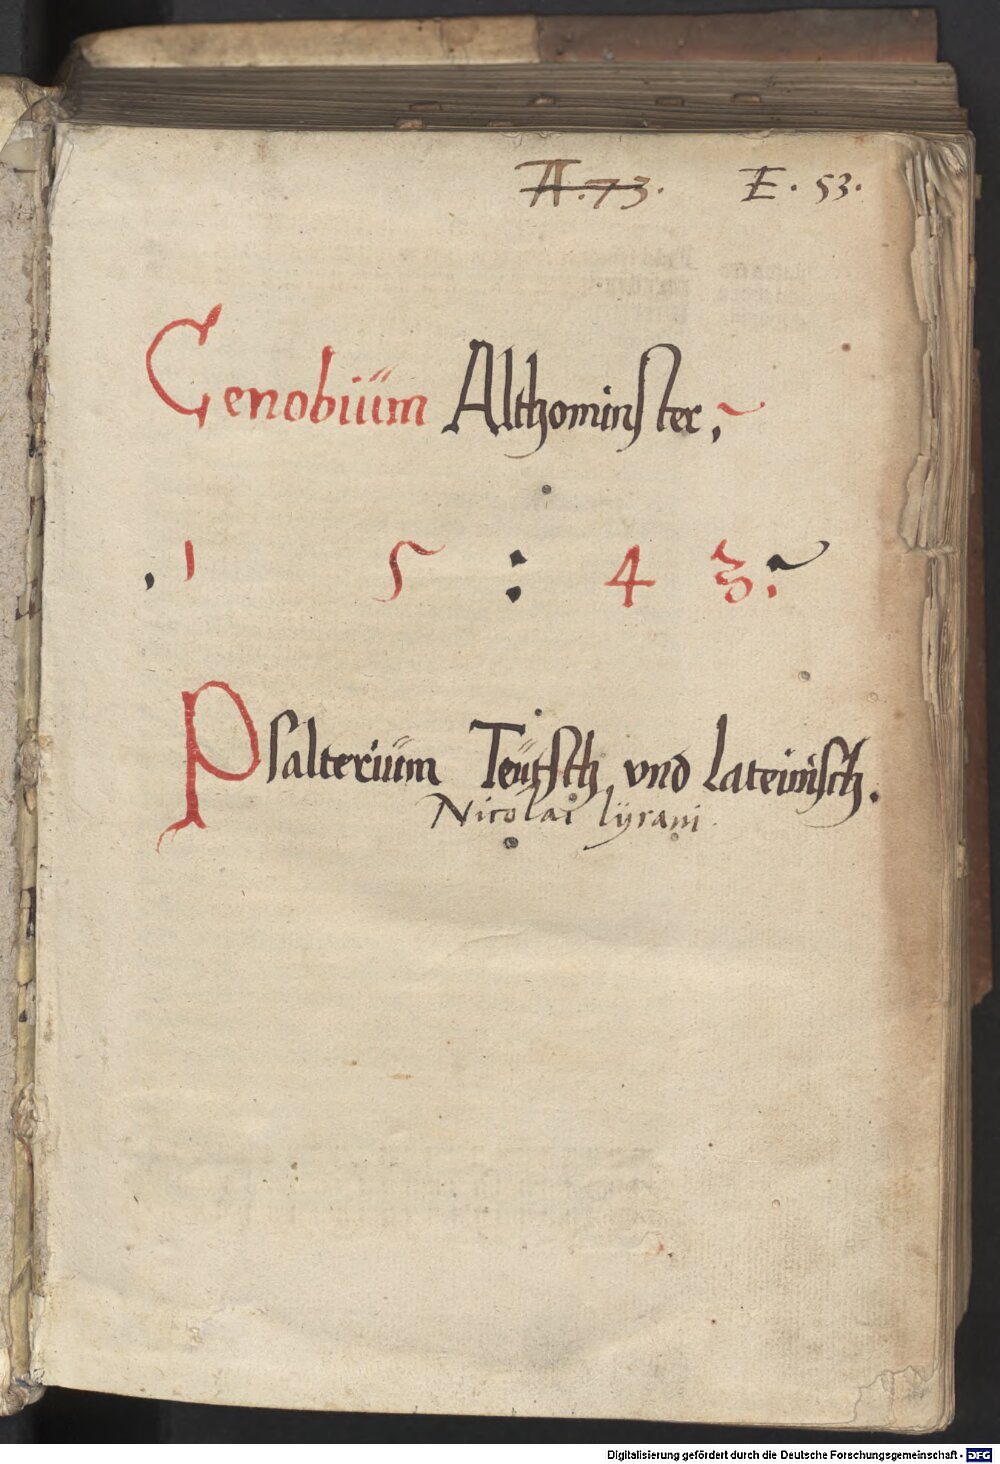 A. 73. E. 53.
Cenobiům Althominster,
. 1 5 : 4 3 ;
Psalteriům Teütsch vnd Lateinisch.
Nicolai lÿrani
Digitalisierung gefördert durch die Deutsche Forschungsgemeinschaft - DFG